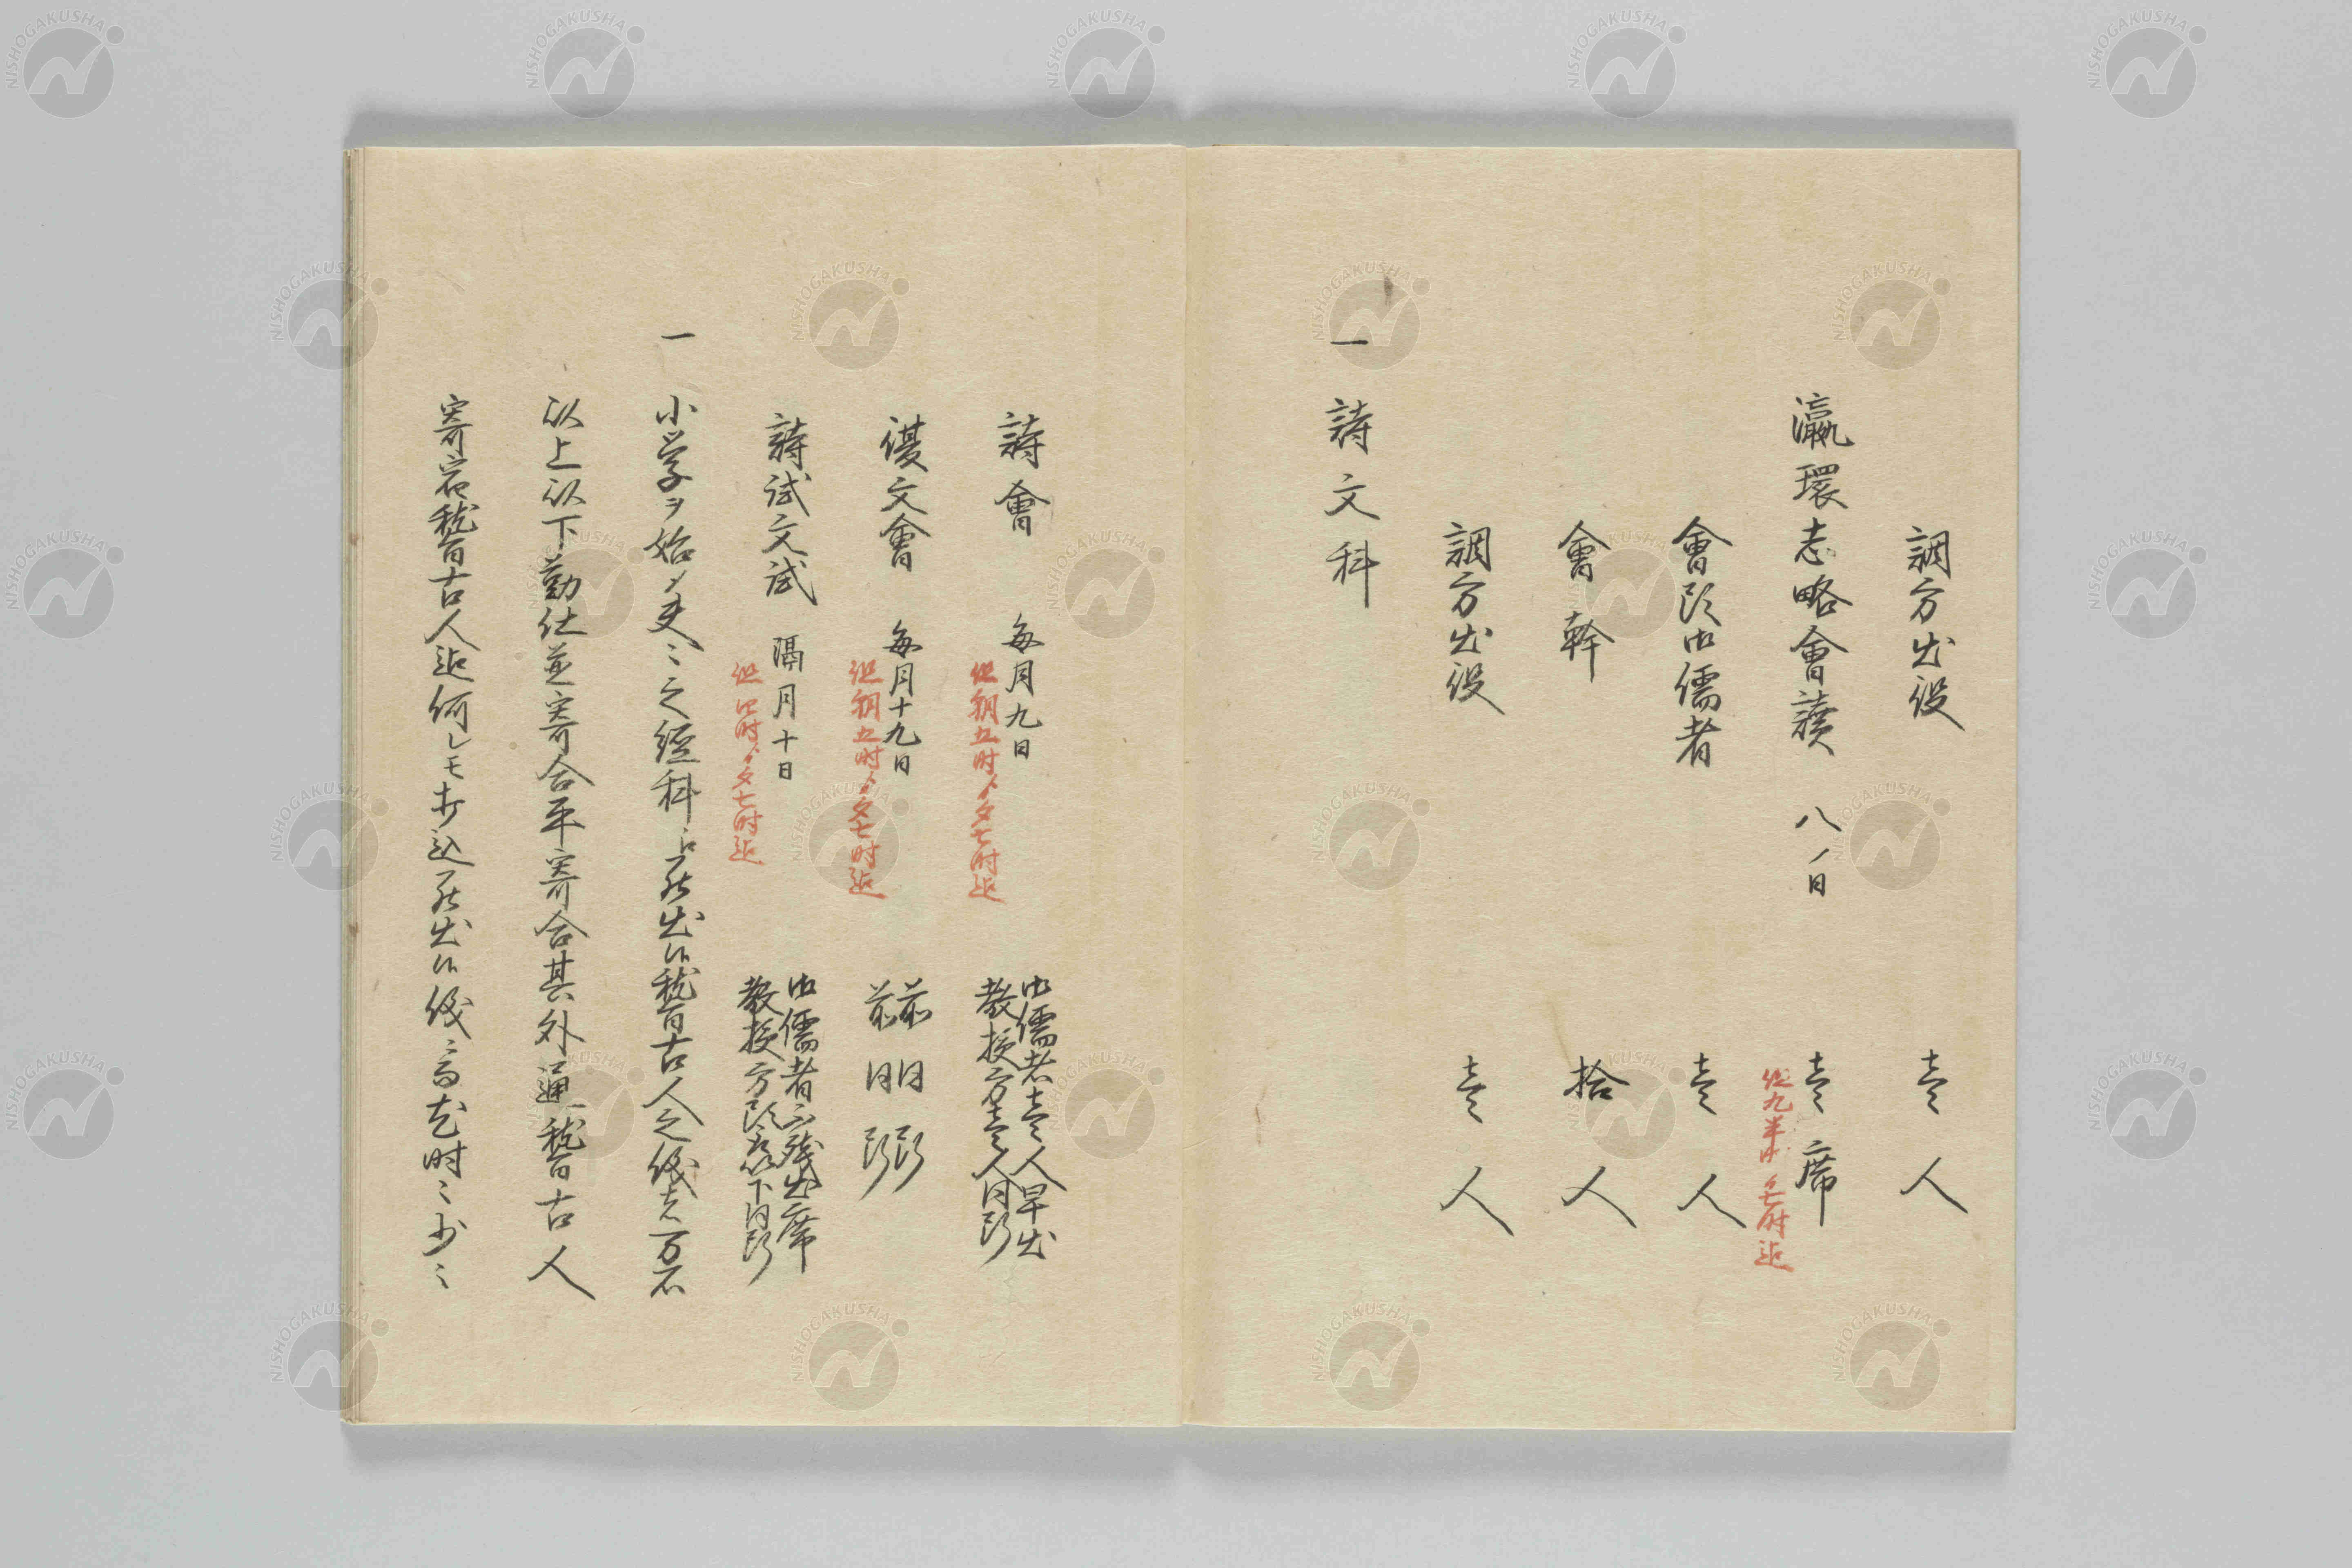 調方出役 壱人
瀛環志略會讀 八ノ日 壱席
但九半時ゟ七時迄
會頭御儒者 壱人
會幹 拾人
調方出役 壱人
一 詩文科
詩會 毎月九日
但朝五時ゟ夕七時迄
御儒者壱人早出
教授方壱人同断
文會 毎月十九日
但朝五時ゟ夕七時迄
前同断
前同断
詩試文試 隔月十日
但四時ゟ夕七時迄
御儒者不残出席
教授方頭取以下同断
一 小学ヲ始メ夫々之経科江罷出候稽古人之儀者万石
以上以下勤仕並寄合平寄合其外通稽古人
寄宿稽古人迄何レモ打込罷出候儀ニ而尤時々少々
NISHOGAKUSHA